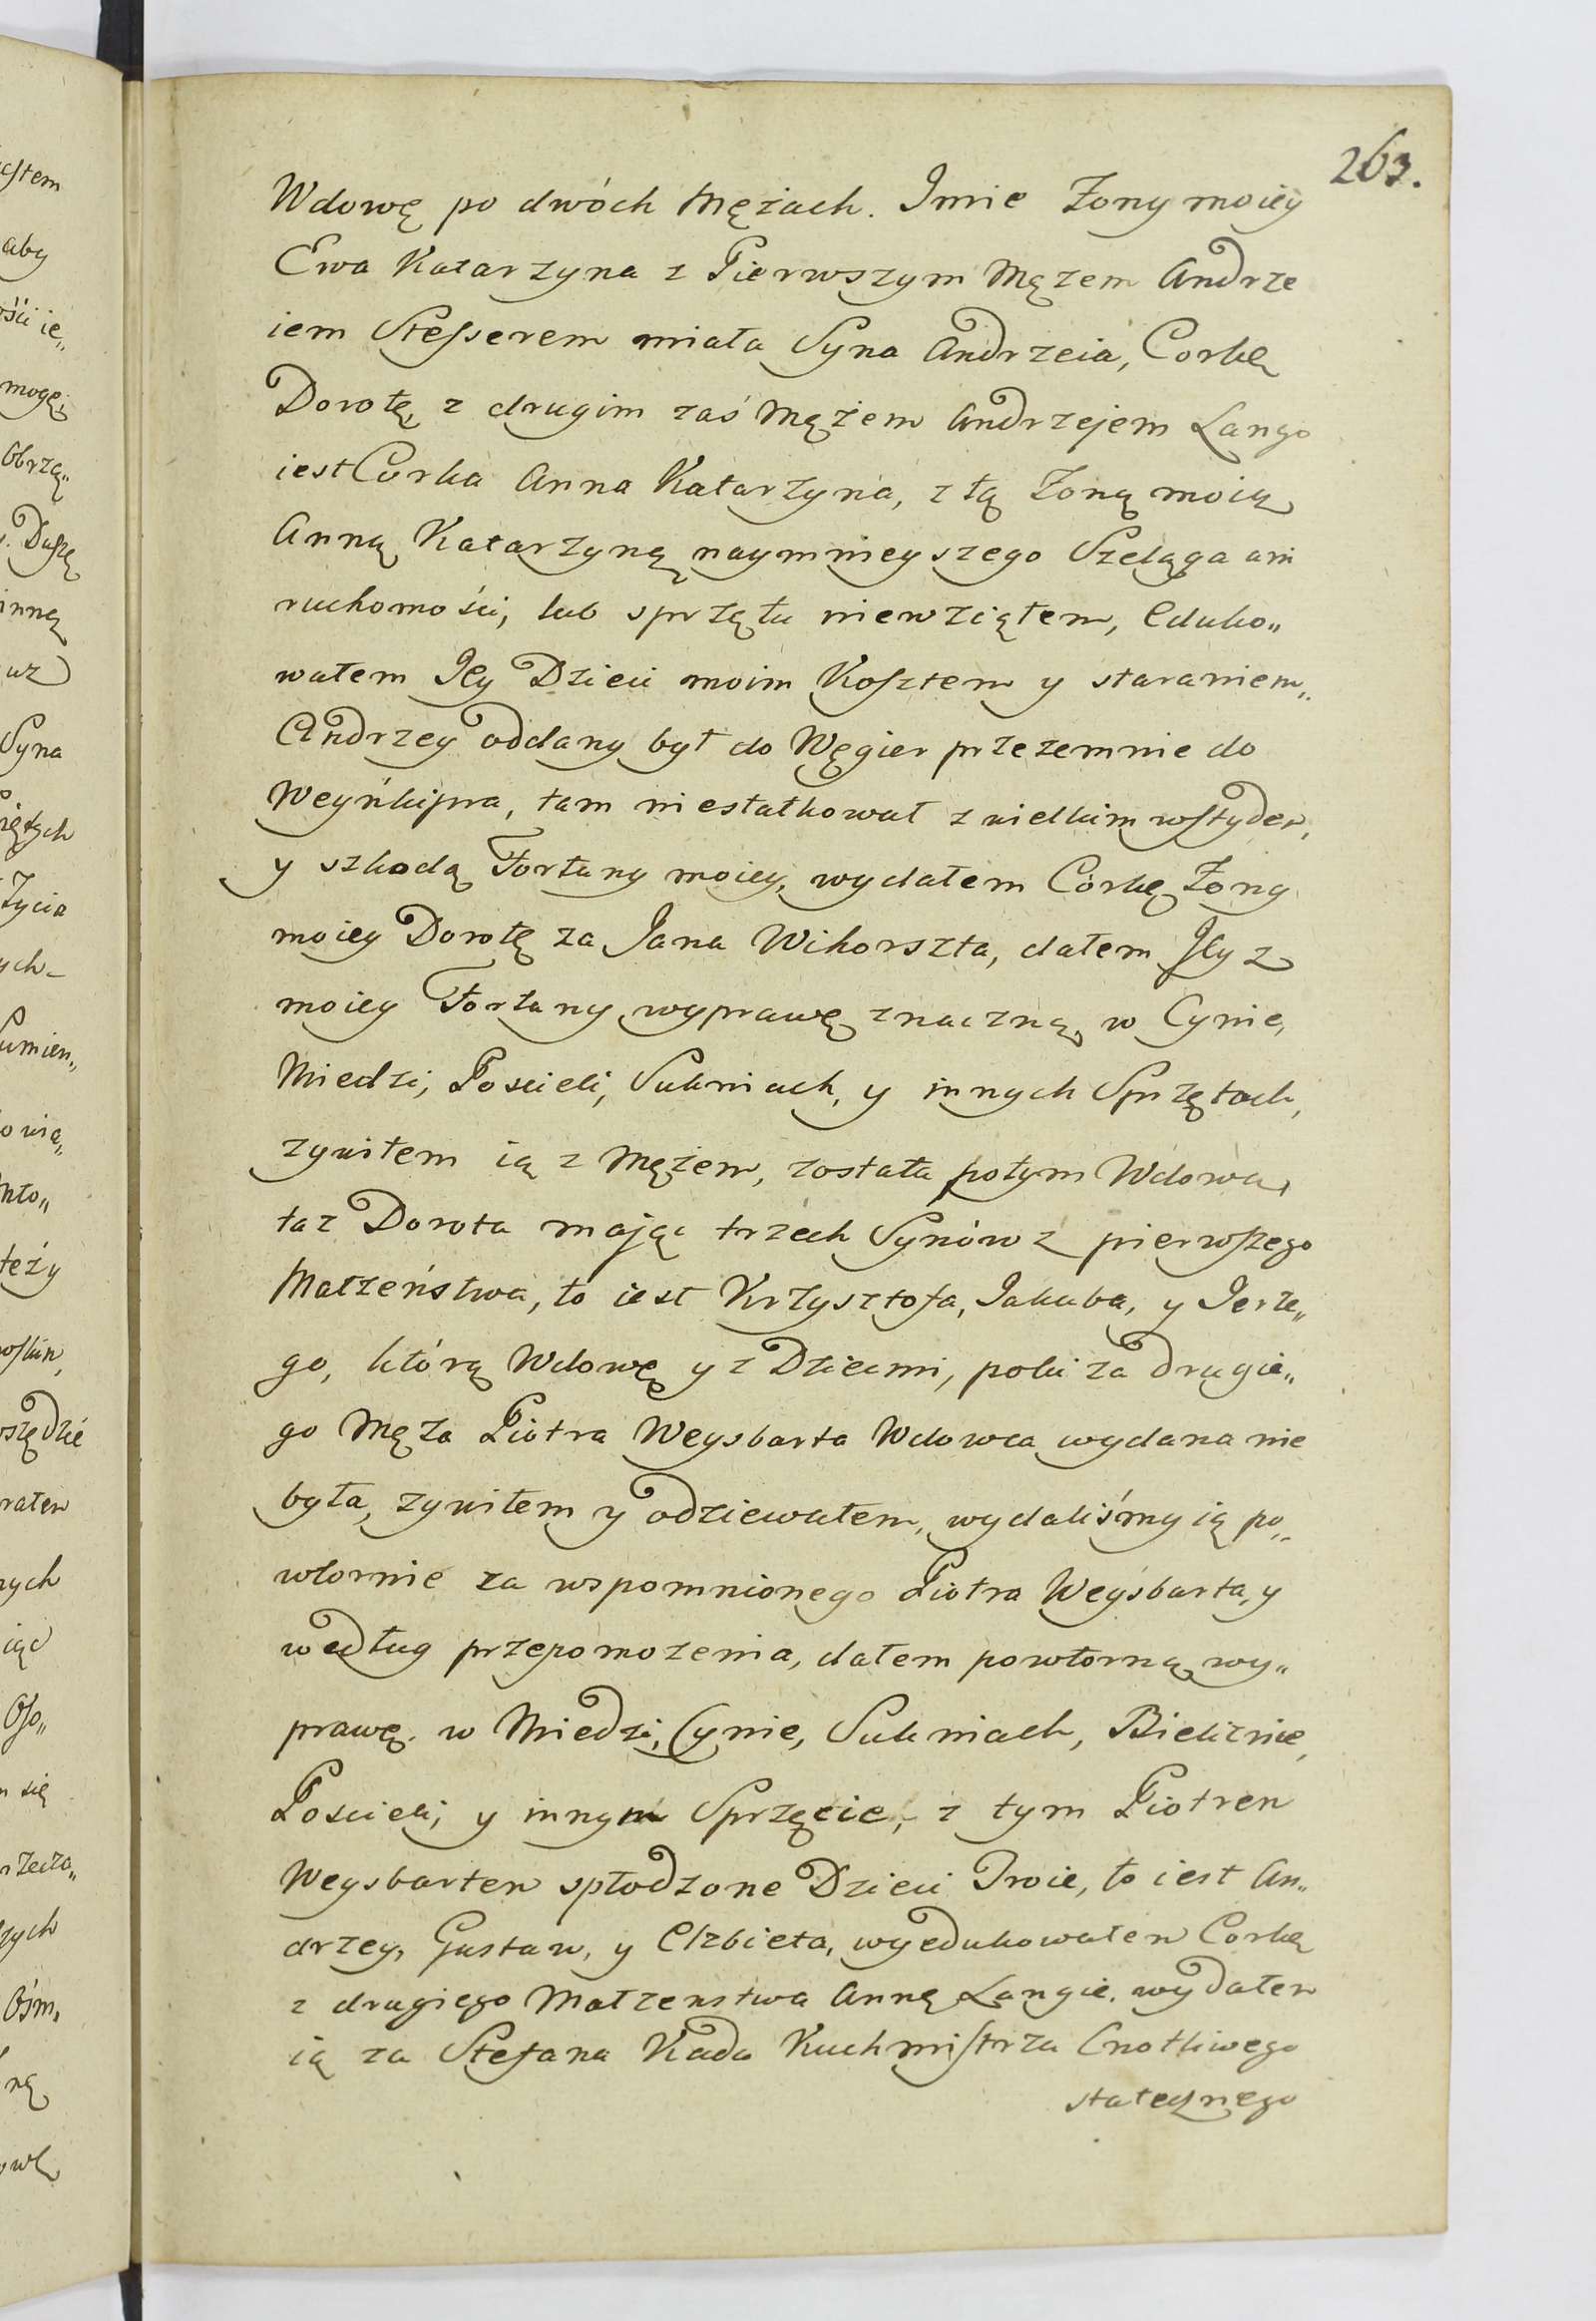 263.
Wdowę po dwóch Mężach. Jmie Zony moiey
Ewa Katarzyna z Pierwszym Mężem Andrze
iem Stefserem miała Syna Andrzeia, Corkę
Dorotę, z drugim zaś Mężem Andrzejem Lango
iest Corka Anna Katarzyna, z tą Zoną moią
Anną Katarzyną naymnieyszego Szeląga ani
ruchomości, lub sprzętu niewziąłem, Eduko„
wałem Jey Dzieci moim Kosztem y staraniem„
Andrzey oddany był do Węgier przezemnie do
Weyńkijpra, tam niestatkował z wielkim wstydem,
y szkodą Fortuny moiey, wydałem Córkę Zony
moiey Dorotę za Jana Wihorszta, dałem Jey z
moiey Fortuny wyprawę znaczną, w Cynie,
Miedzi, Poscieli, Sukniach, y innych Sprzętach,
zywiłem ią z Mężem, została potym Wdową
taz Dorota mając trzech Synów z pierwszego
Małżeństwa, to iest Krzysztofa, Jakuba, y Jerze„
go, którą Wdowę y z Dziećmi, poki za drugie„
go Męża Piotra Weysbarta Wdowca wydana nie
była, zywiłem y odziewałem, wydaliśmy ią po„
wtornie za wspomnionego Piotra Weysbarta, y
według przepomożenia, dałem powtorną wy„
prawę. w Miedzi, Cynie, Sukniach, Bieliznie,
Poscieli, y innym Sprzęcie, z tym Piotrem
Weysbartem spłodzone Dzieci Troie, to iest An„
drzey, Gustaw, y Elzbieta, wyedukowałem Corkę
z drugiego Małzenstwa Annę Langie. wydałem
ią za Stefana Kada Kuchmistrza Cnotliwego
statecznego